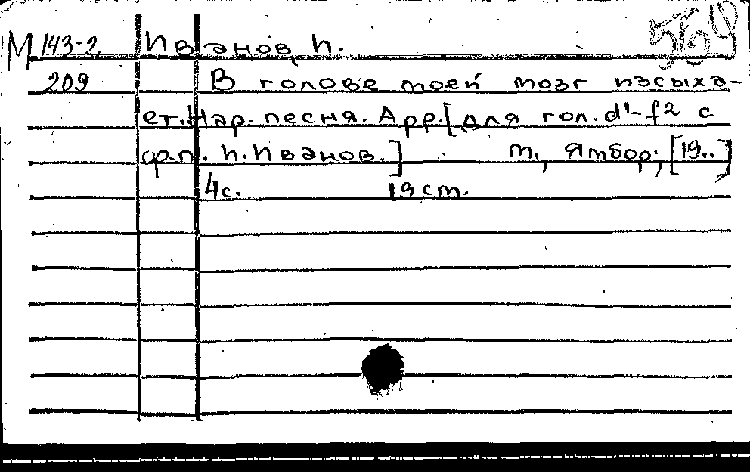 М 143-2. Иванов, П.
209 В голове моей мозг иссыха-
ет. Нар. песня. Арр. [для гол. d¹-f² с
ф.п. П. Иванов.] М., Ямбор, [19..]
4с. 19 cm.